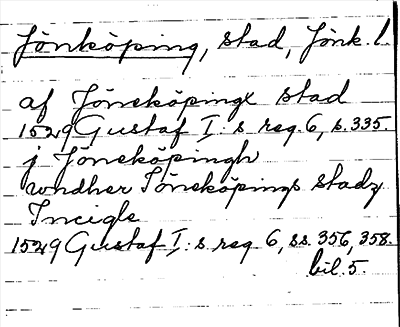 Jönköping, stad, Jönk. l.
af Jöneköpingx stad
1529 Gustaf I:s reg. 6, s. 335.
j Jöneköpingh
wndher Jöneköpings stadz
Incigle
1529 Gustaf I:s reg 6, ss. 356, 358.
bil. 5.